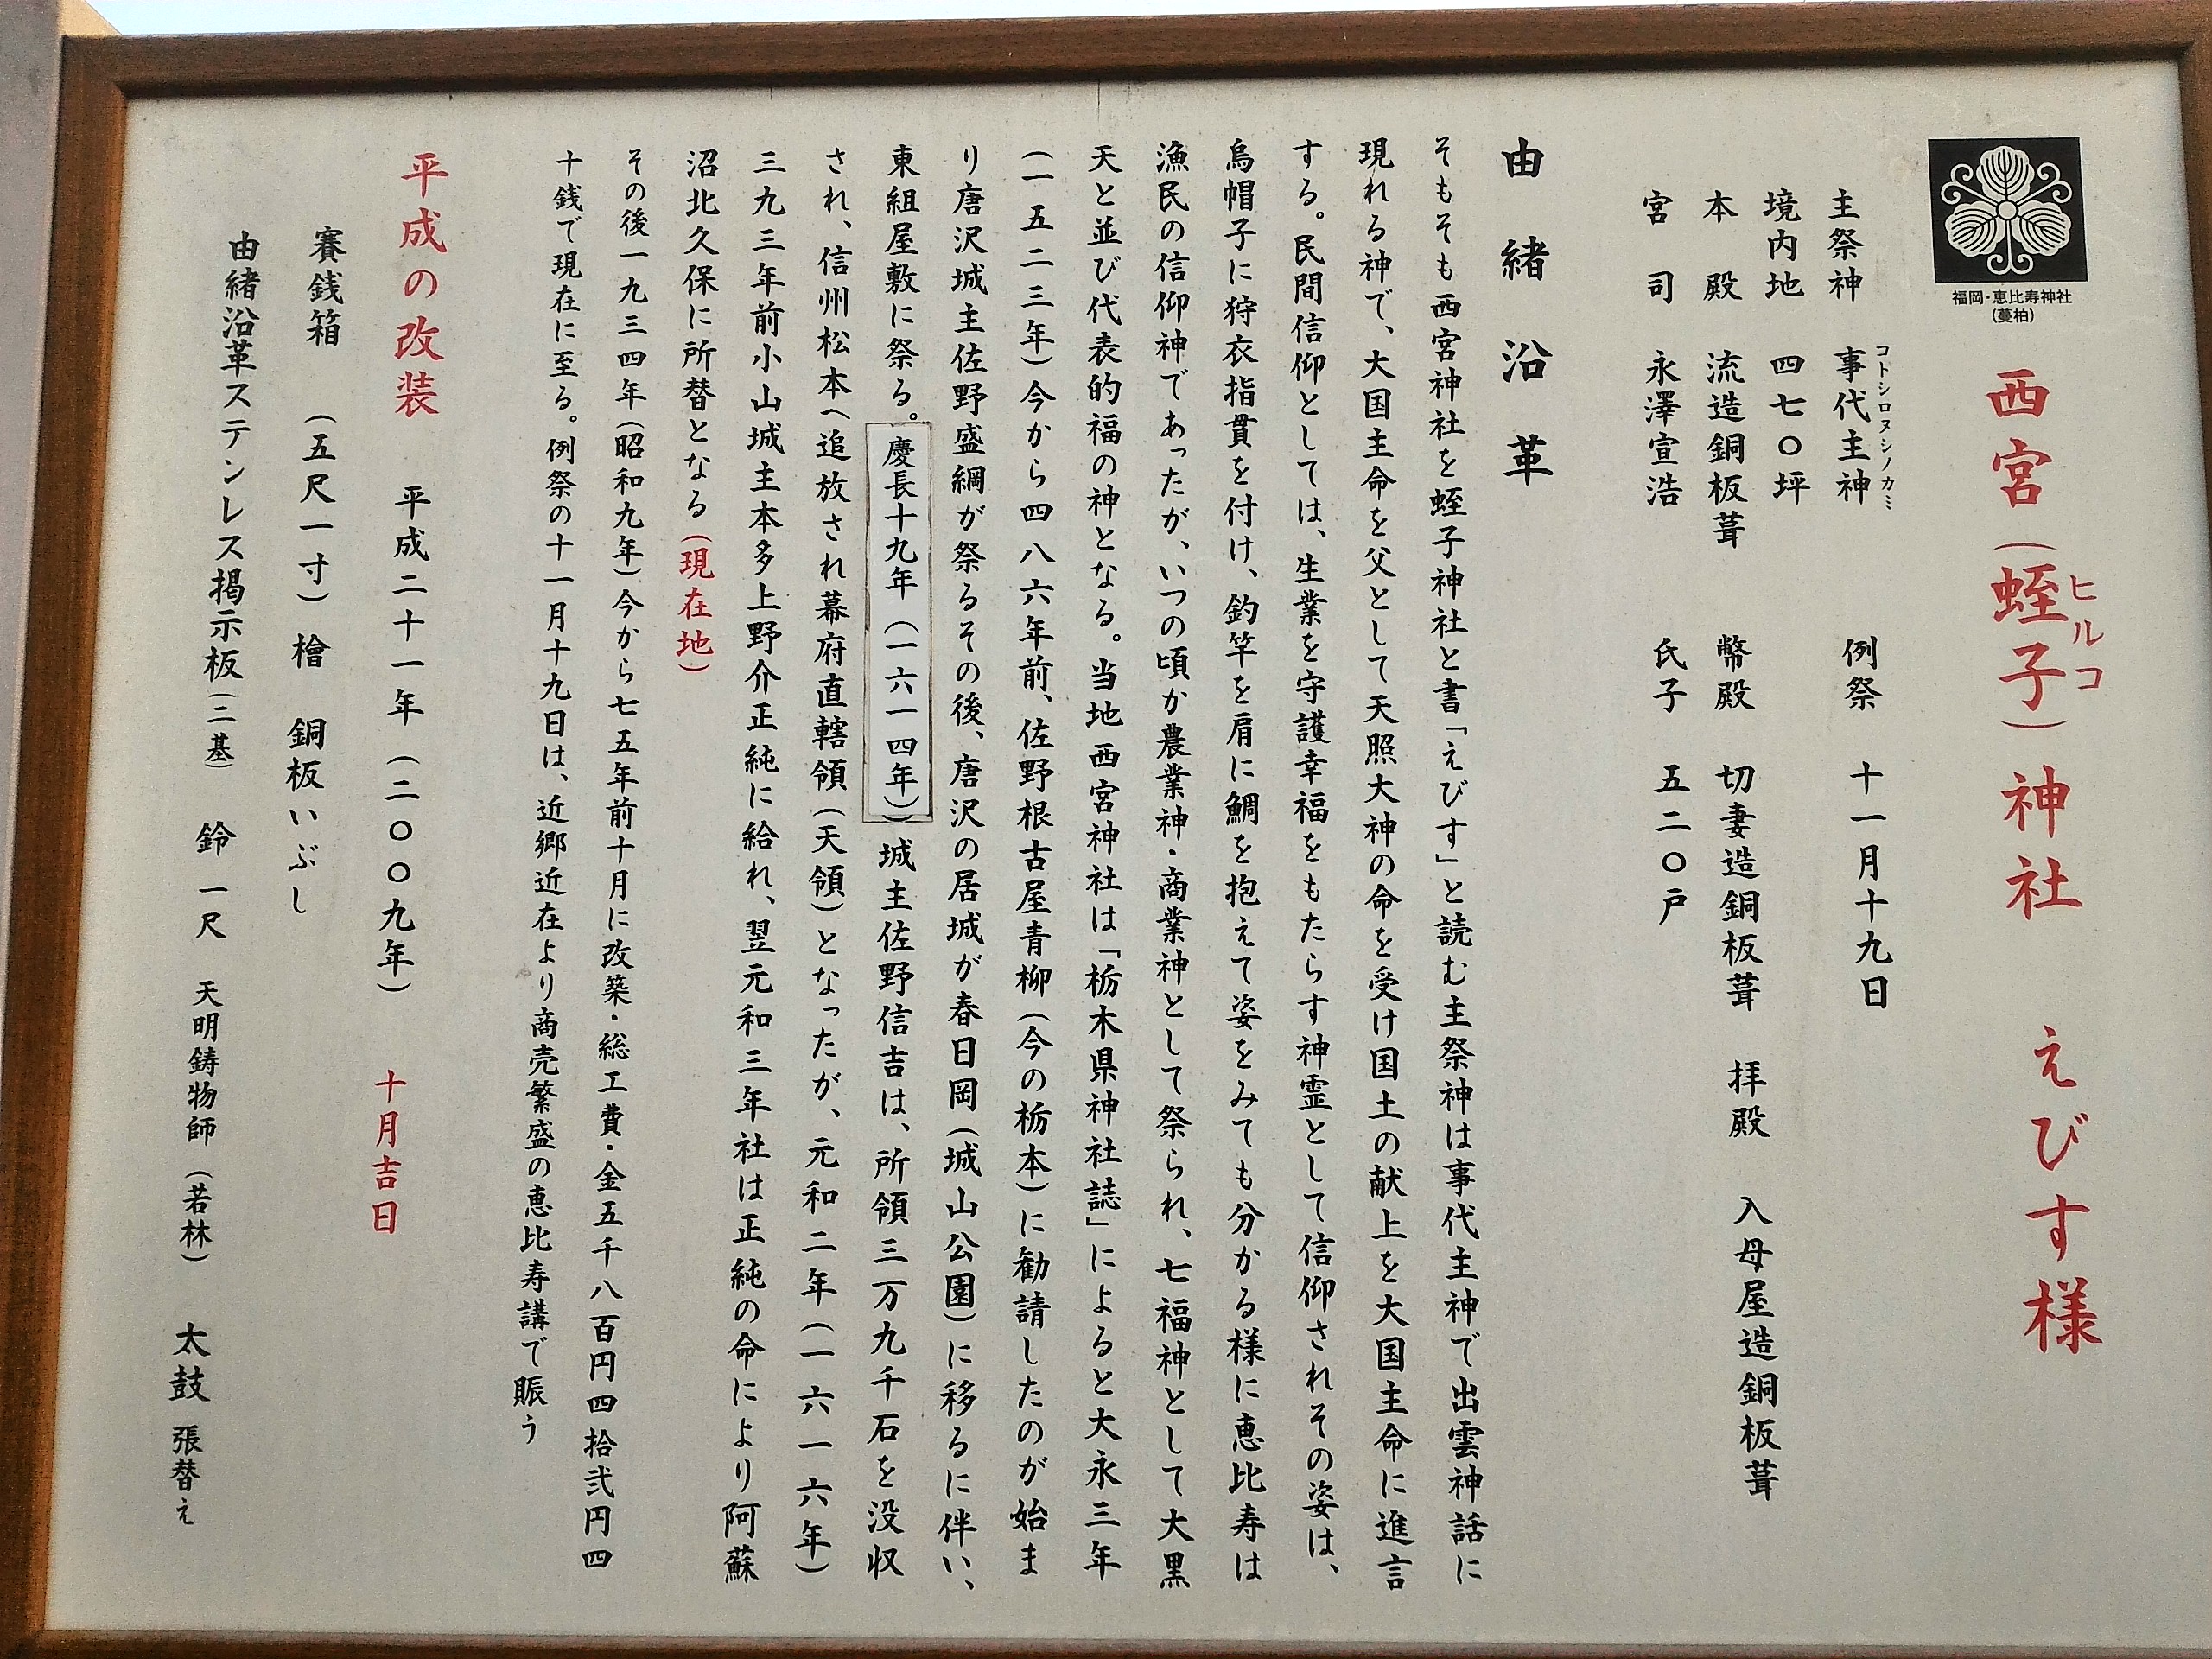 福岡・恵比寿神社
(蔓柏)
西宮(蛭子)神社 えびす様
ヒルコ
主祭神 事代主神 例祭 十一月十九日
コトシロヌシノカミ
境内地 四七〇坪
本殿 流造銅板葺 幣殿 切妻造銅板葺 拝殿 入母屋造銅板葺
宮司 永澤宣浩 氏子 五二〇戸
由緒沿革
そもそも西宮神社を蛭子神社と書「えびす」と読む主祭神は事代主神で出雲神話に
現れる神で、大国主命を父として天照大神の命を受け国土の献上を大国主命に進言
する。民間信仰としては、生業を守護幸福をもたらす神霊として信仰されその姿は、
烏帽子に狩衣指貫を付け、釣竿を肩に鯛を抱えて姿をみても分かる様に恵比寿は
漁民の信仰神であったが、いつの頃か農業神・商業神として祭られ、七福神として大黒
天と並び代表的福の神となる。当地西宮神社は「栃木県神社誌」によると大永三年
(一五二三年)今から四八六年前、佐野根古屋青柳(今の栃本)に勧請したのが始ま
り唐沢城主佐野盛綱が祭るその後、唐沢の居城が春日岡(城山公園)に移るに伴い、
東組屋敷に祭る。慶長十九年(一六一四年)城主佐野信吉は、所領三万九千石を没収
され、信州松本へ追放され幕府直轄領(天領)となったが、元和二年(一六一六年)
三九三年前小山城主本多上野介正純に給れ、翌元和三年社は正純の命により阿蘇
沼北久保に所替となる(現在地)
その後一九三四年(昭和九年)今から七五年前十月に改築・総工費・金五千八百円四拾弐円四
十銭で現在に至る。例祭の十一月十九日は、近郷近在より商売繁盛の恵比寿講で賑う
平成の改装 平成二十一年(二〇〇九年) 十月吉日
賽銭箱 (五尺一寸) 檜 銅板いぶし
由緒沿革ステンレス掲示板(二基) 鈴 一尺 天明鋳物師(若林) 太鼓 張替え